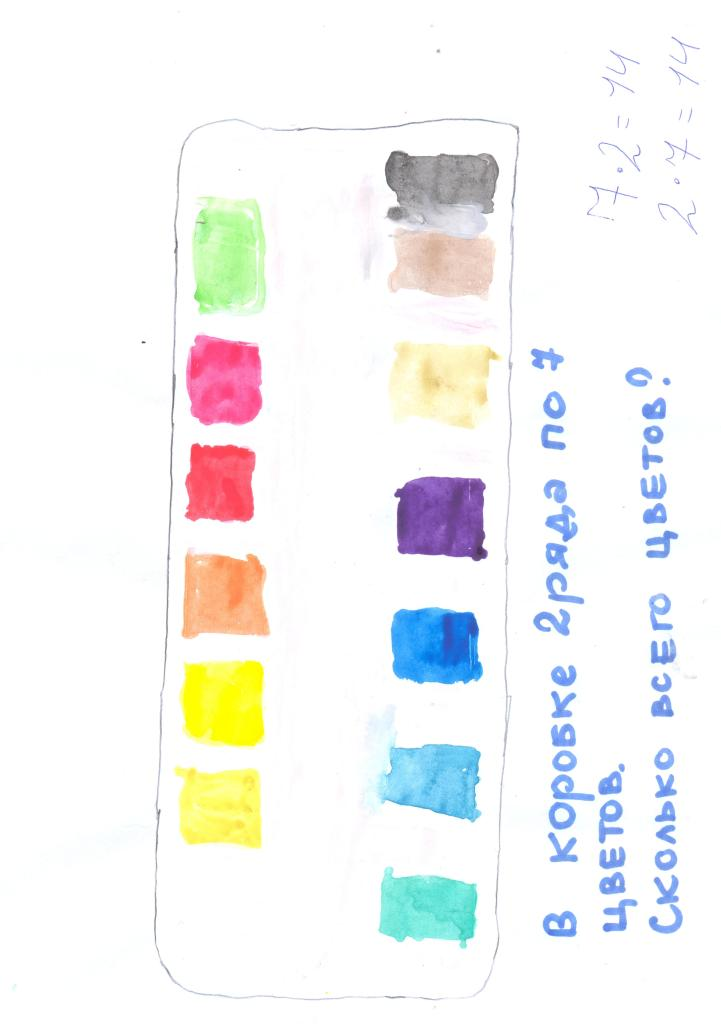 В коробке 2 ряда по 7
цветов.
Сколько всего цветов?
7·2=14
2·7=14